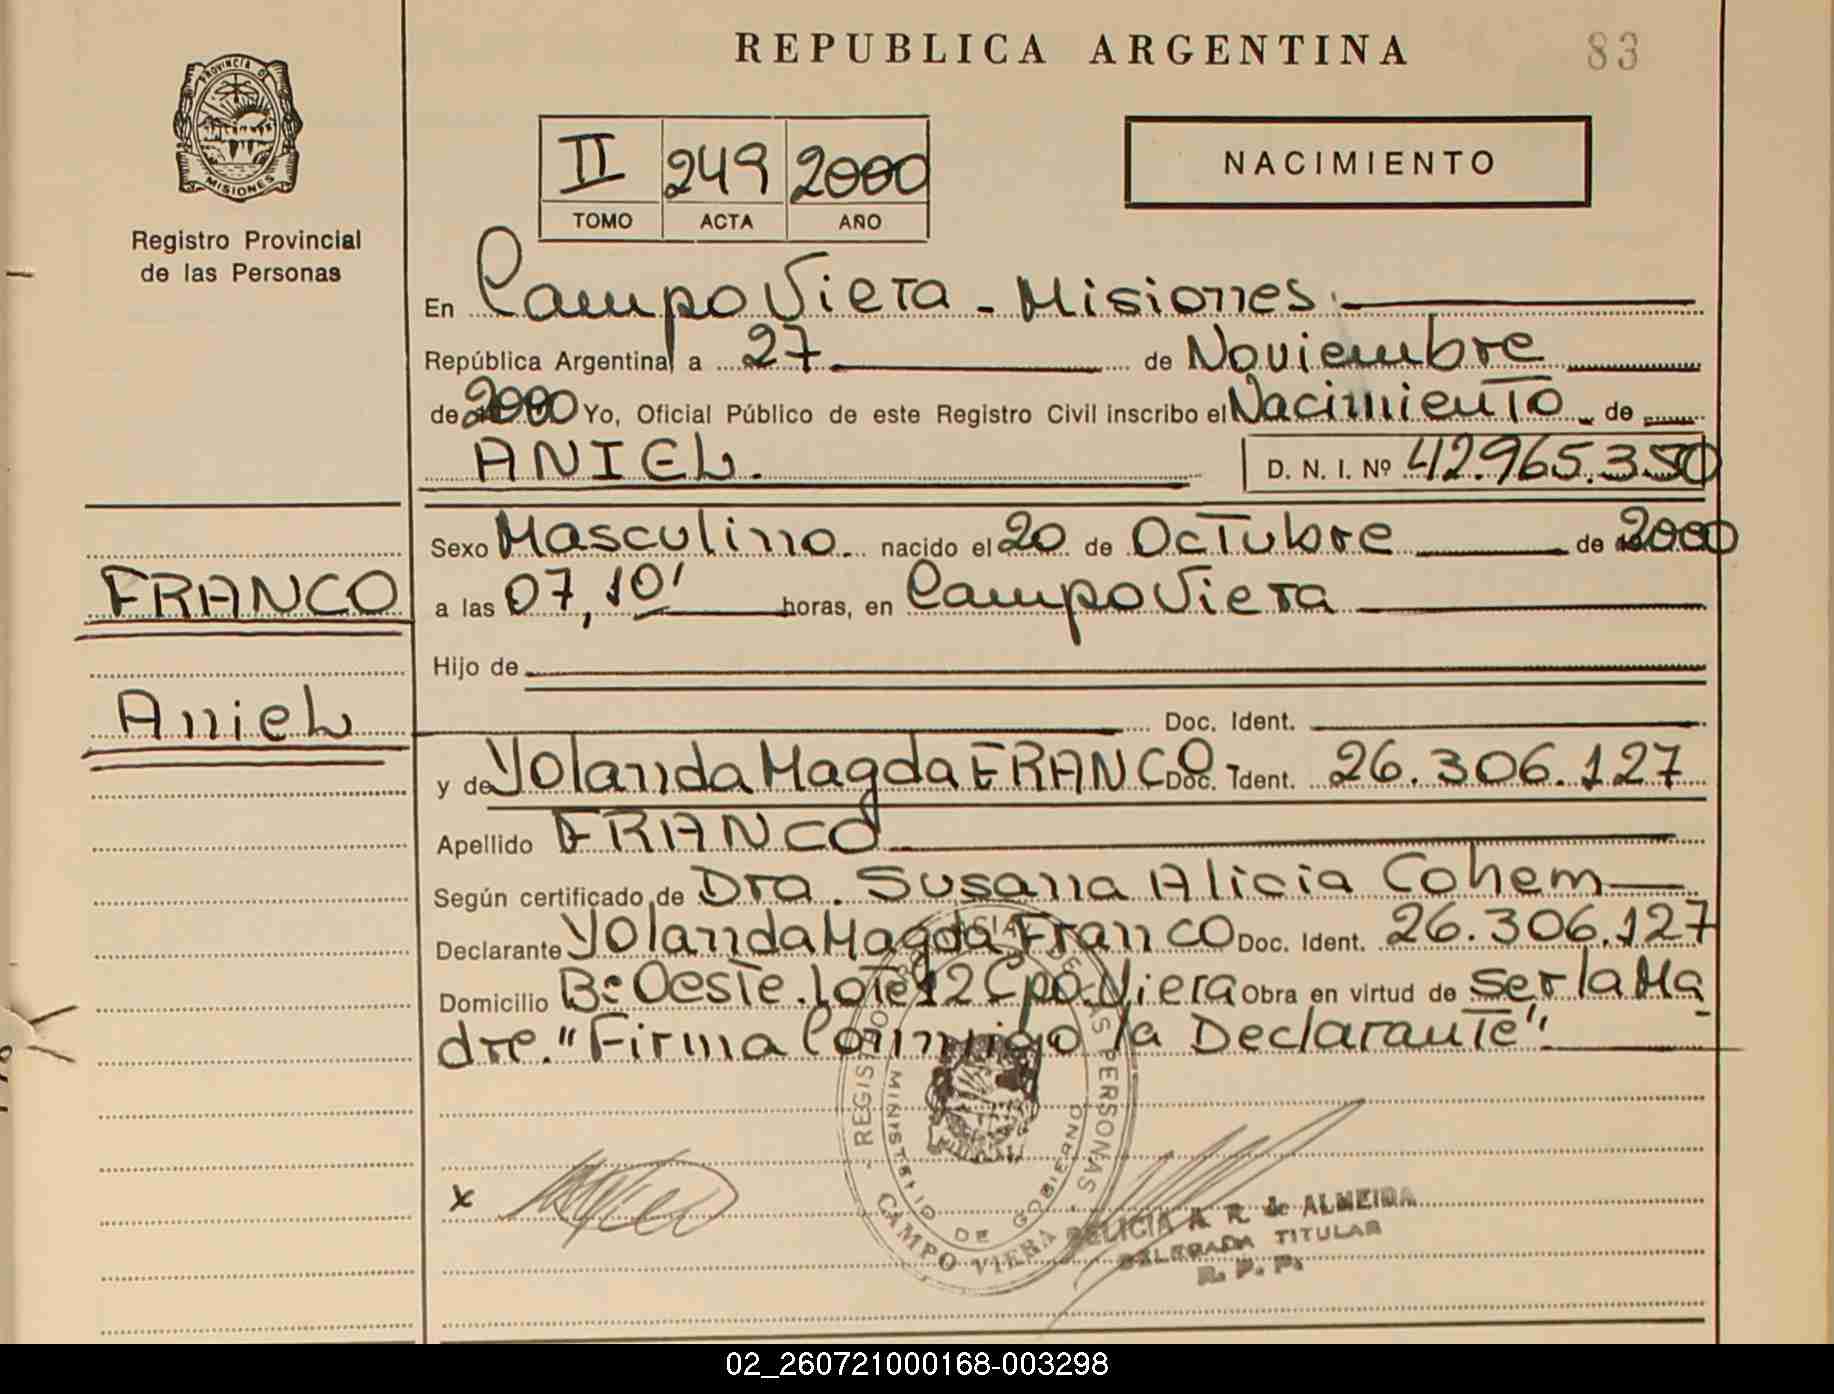 REPUBLICA ARGENTINA
83
PROVINCIA DE
MISIONES
Registro Provincial
de las Personas
II 249 2000
TOMO ACTA AÑO
NACIMIENTO
En Campo Viera - Misiones.
República Argentina, a 27 de Noviembre
de 2000 Yo, Oficial Público de este Registro Civil inscribo el Nacimiento de
ANIEL. D. N. I. Nº 42.965.350
Sexo Masculino nacido el 20 de Octubre de 2000
FRANCO
a las 07,10' horas, en Campo Viera
Hijo de
Aniel
Doc. Ident.
y de Yolanda Magda FRANCO- Doc. Ident. 26.306.127
Apellido FRANCO
Según certificado de Dra. Susana Alicia Cohem
Declarante Yolanda Magda Franco Doc. Ident. 26.306.127
Domicilio Bº Oeste. Lote 12 Cpo. Viera Obra en virtud de ser la Ma
dre. "Firma Conmigo la Declarante".
REGISTRO PROVINCIAL DE LAS PERSONAS
MINISTERIO DE GOBIERNO
CAMPO VIERA
x
FELICIA A. R. de ALMEIDA
DELEGADA TITULAR
R. P. P.
02_260721000168-003298